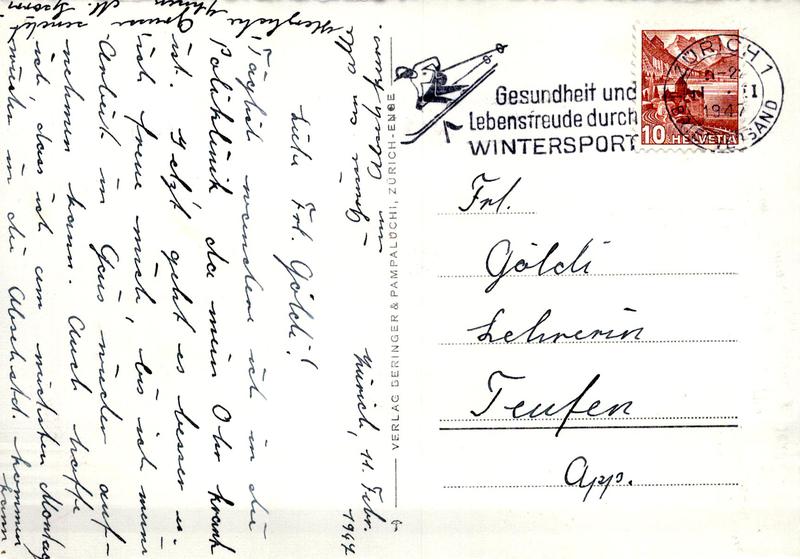 Zürich, 11. Febr. 1947
Liebes Frl. Göldi!
Täglich wandere ich in die
Poliklinik da mein Ohr krank
ist. Jetzt geht es besser u.
ich freue mich, bis ich meine
Arbeit in Gais wieder auf-
nehmen kann. Auch hoffe
ich, dass ich am nächsten Montag
wieder in die Abschstd. kommen
kann.
Herzliche Grüsse sendet
Ihnen M.
Gruss an alle
VERLAG BERINGER & PAMPALUCHI, ZÜRICH-ENGE
Gesundheit und
Lebensfreude durch
WINTERSPORT
ZÜRICH 1
1947
BRIEFVERSAND
10 HELVETIA
Frl.
Göldi
Lehrerin
Teufen
App.